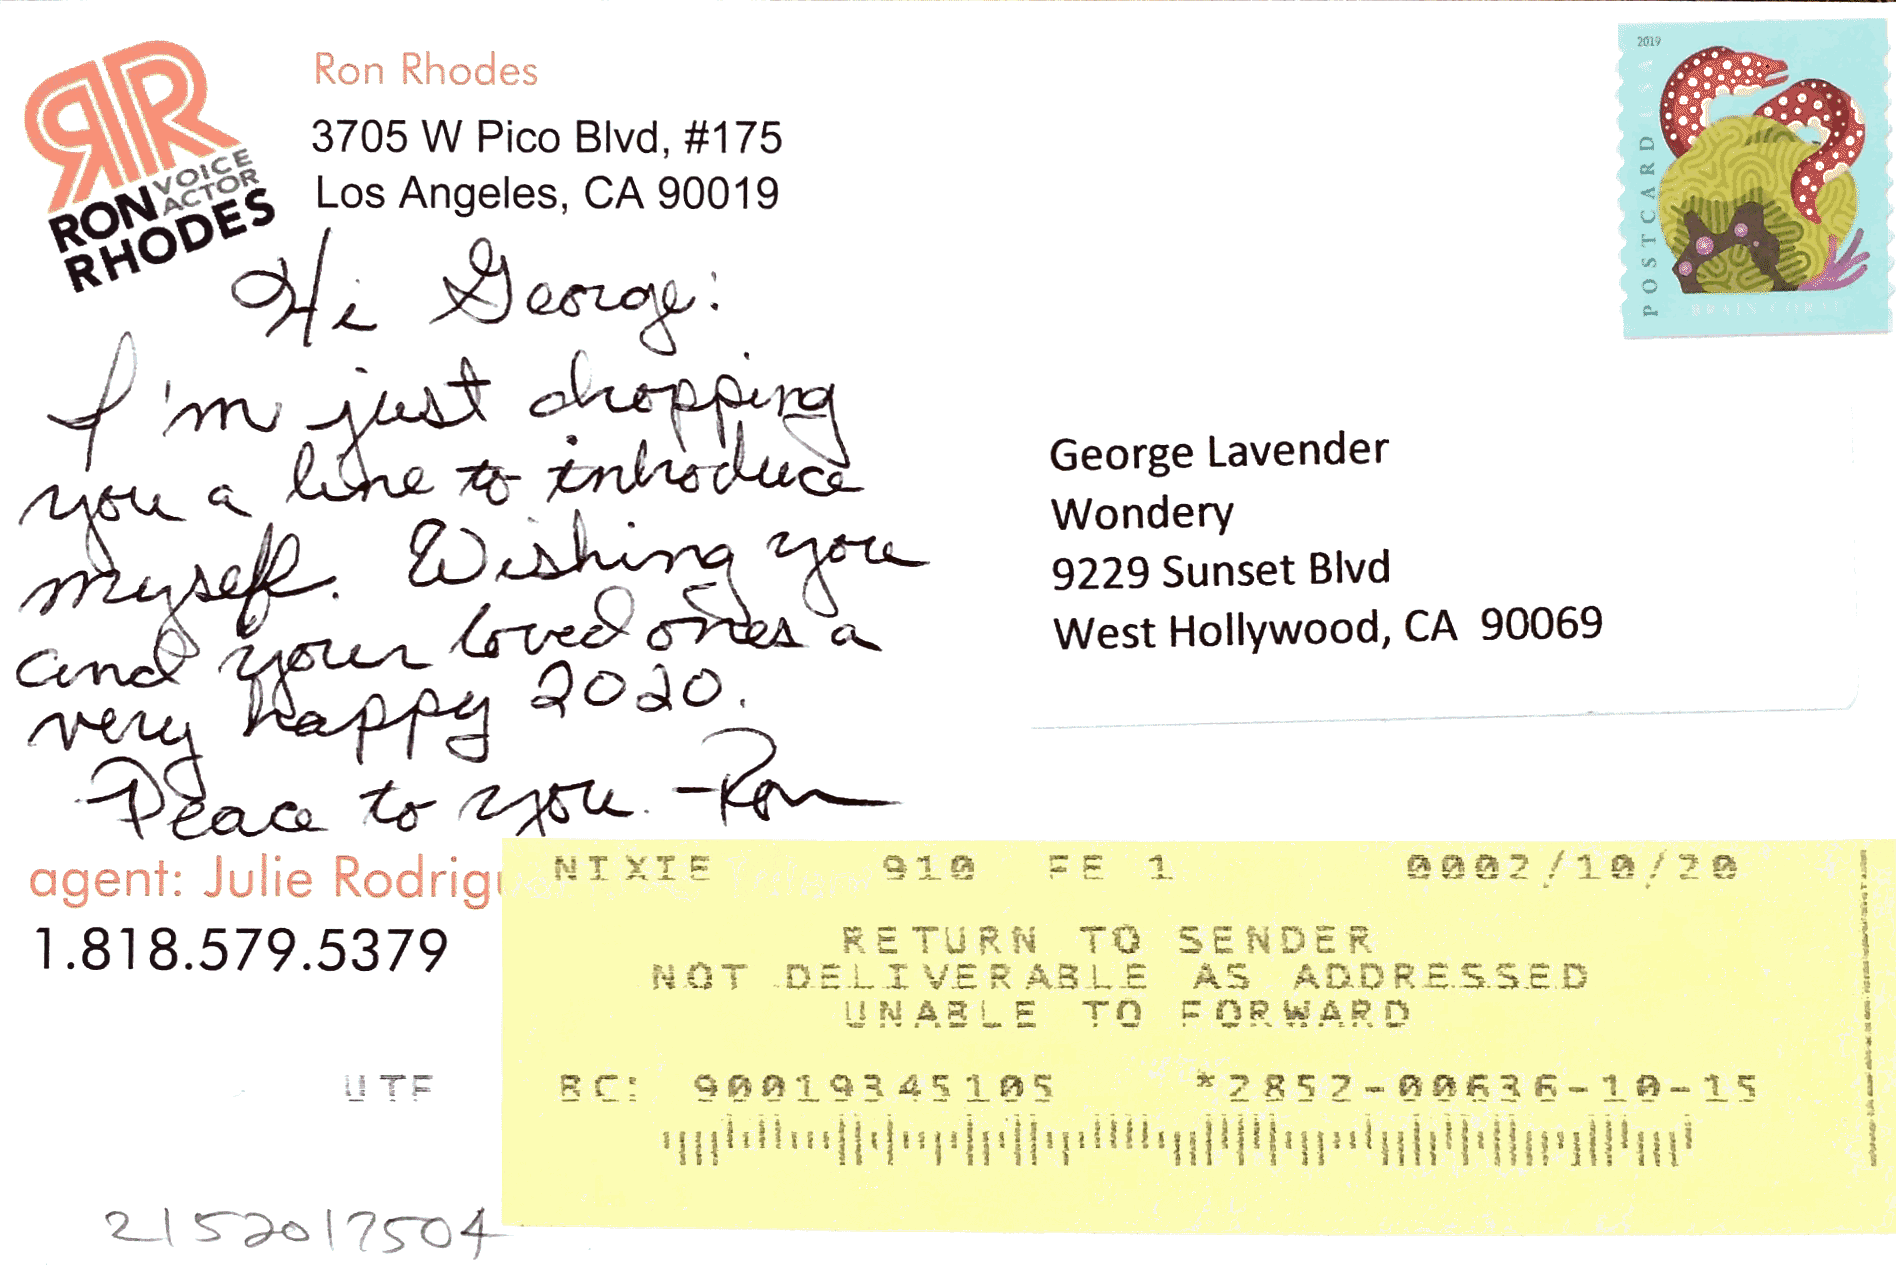 RR
RON VOICE
ACTOR
RHODES
Ron Rhodes
3705 W Pico Blvd, #175
Los Angeles, CA 90019
2019
POSTCARD USA
BRAIN CORAL
Hi George:
I'm just dropping
you a line to introduce
myself. Wishing you
and your loved ones a
very happy 2020.
Peace to you. -Ron
George Lavender
Wondery
9229 Sunset Blvd
West Hollywood, CA 90069
agent: Julie Rodrigu
1.818.579.5379
NIXIE 910 FE 1 0002/10/20
RETURN TO SENDER
NOT DELIVERABLE AS ADDRESSED
UNABLE TO FORWARD
UTF
BC: 90019345105 *2852-00636-10-15
2152017504